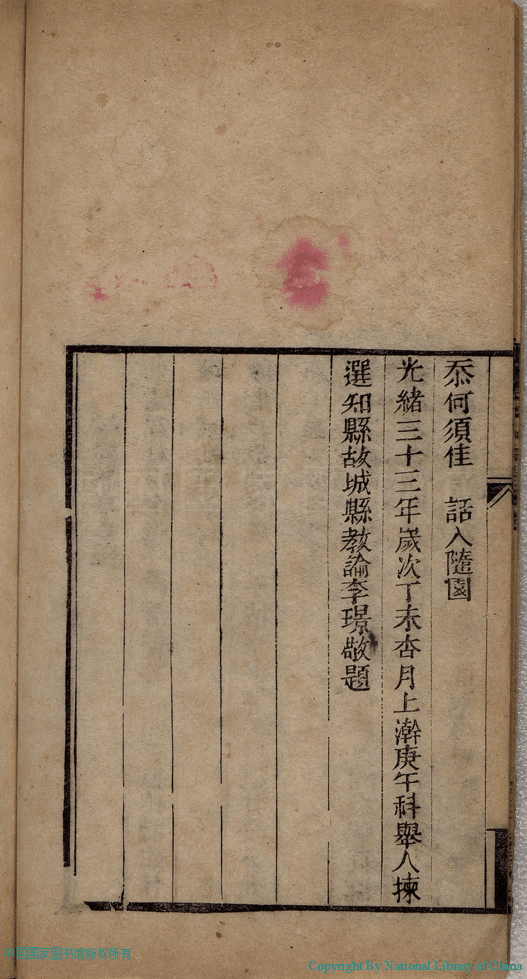 忝何須佳　話入隨園
光緒三十三年歲次丁未杏月上澣庚午科舉人揀
選知縣故城縣教諭李璟敬題
中国国家图书馆版权所有
Copyright By National Library of China